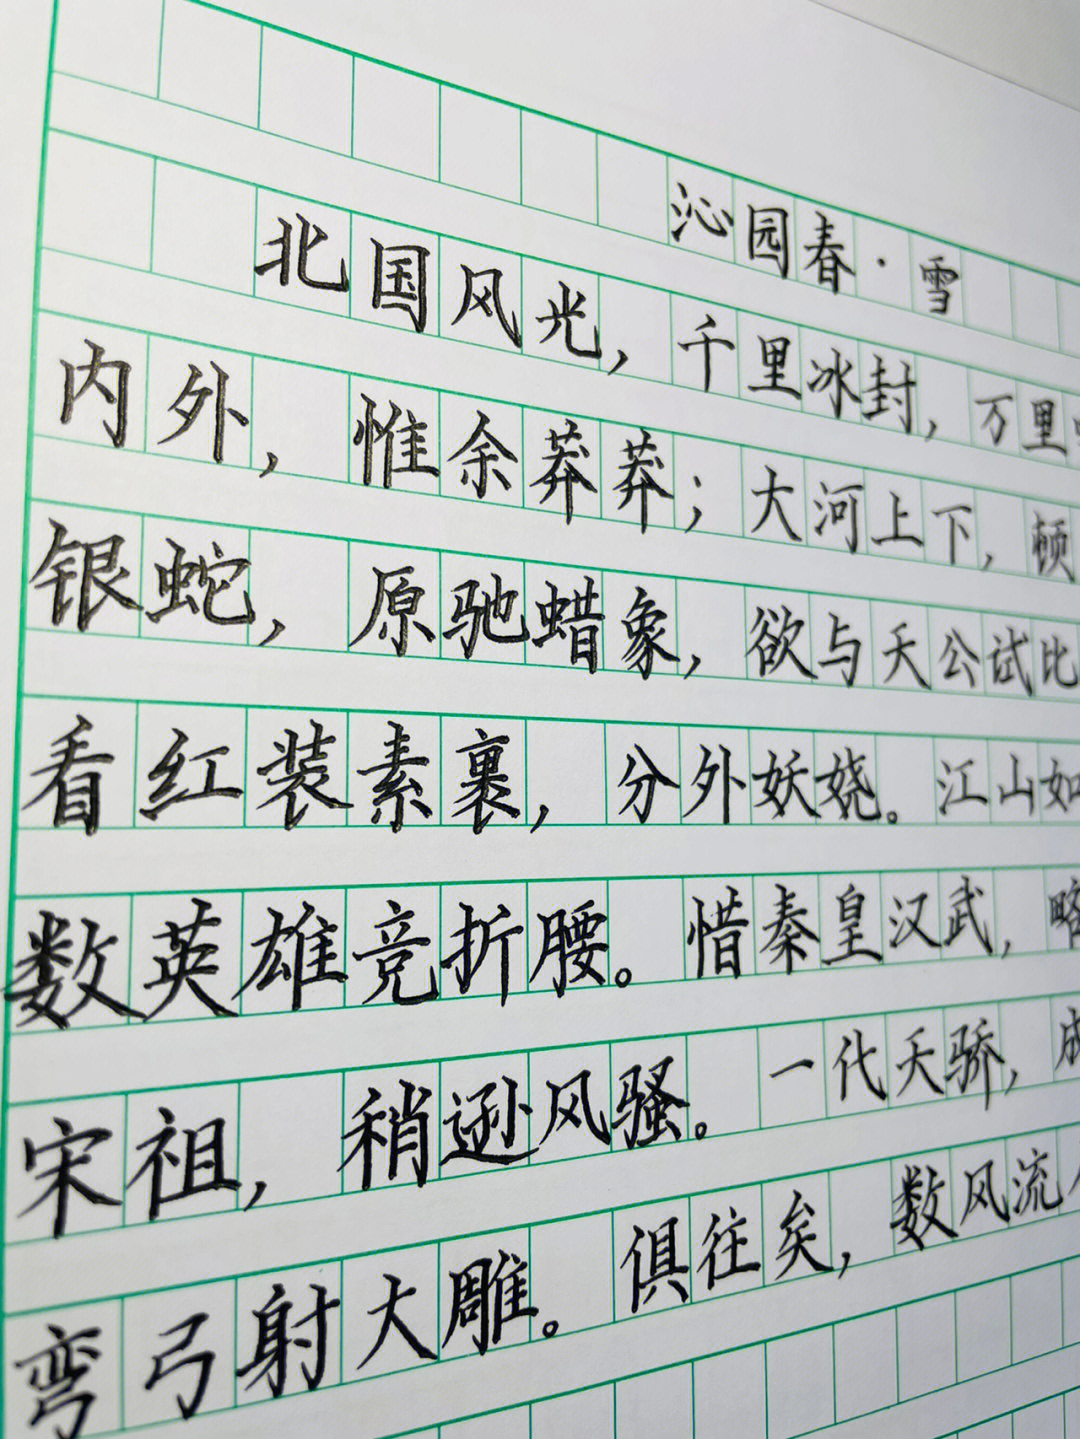 沁园春·雪
北国风光，千里冰封，万里
内外，惟余莽莽；大河上下，顿
银蛇，原驰蜡象，欲与天公试比
看红装素裹，分外妖娆。江山如
数英雄竞折腰。惜秦皇汉武，略
宋祖，稍逊风骚。一代天骄，成
弯弓射大雕。俱往矣，数风流